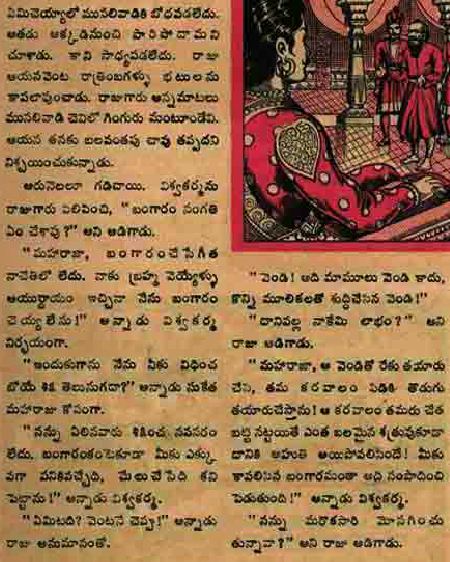 ఏమిచెయ్యాలో ముసలివాడికి బోధపడలేదు.
అతడు అక్కడినుంచి పారిపోదామని
చూశాడు. కాని సాధ్యపడలేదు. రాజు
ఆయనవెంట రాత్రింబగళ్ళు భటులను
కాపలావుంచాడు. రాజుగారు అన్నమాటలు
ముసలివాడి చెవిలో గింగురు మంటూండేవి.
ఆయన తనకు బలవంతపు చావు తప్పదని
నిశ్చయించుకున్నాడు.
ఆరునెలలూ గడిచాయి. విశ్వకర్మను
రాజుగారు పిలిపించి, "బంగారం సంగతి
ఏం చేశావు?" అని అడిగాడు.
"మహారాజా, బంగారంచేసేగీత
నాచేతిలో లేదు. నాకు బ్రహ్మ వెయ్యేళ్ళు
ఆయుర్దాయం ఇచ్చినా నేను బంగారం
చెయ్యలేను!" అన్నాడు విశ్వకర్మ
నిర్భయంగా.
"అందుకుగాను నేను నీకు విధించ
బోయే శిక్ష తెలుసుగదా?" అన్నాడు సుకేత
మహారాజు కోపంగా.
"నన్ను ఏలినవారు శిక్షించ నవసరం
లేదు. బంగారంకంటెకూడా మీకు ఎక్కు
వగా పనికివచ్చేది, మేలుచేసేది కని
పెట్టాను!" అన్నాడు విశ్వకర్మ.
"ఏమిటది? వెంటనే చెప్పు!" అన్నాడు
రాజు అనుమానంతో.
"వెండి! అది మామూలు వెండి కాదు,
కొన్ని మూలికలతో శుద్ధిచేసిన వెండి!"
"దానివల్ల నాకేమి లాభం?" అని
రాజు అడిగాడు.
"మహారాజా, ఆ వెండితో రేకు తయారు
చేసి, తమ కరవాలం పిడికి తొడుగు
తయారుచేస్తాను! ఆ కరవాలం తమరు చేత
బట్టి నట్టయితే ఎంత బలమైన శత్రువుకూడా
దానికి ఆహుతి అయిపోవలసిందే! మీకు
కావలిసిన బంగారమంతా అది సంపాదించి
పెడుతుంది!" అన్నాడు విశ్వకర్మ.
"నన్ను మరొకసారి మోసగించు
తున్నావా?" అని రాజు అడిగాడు.